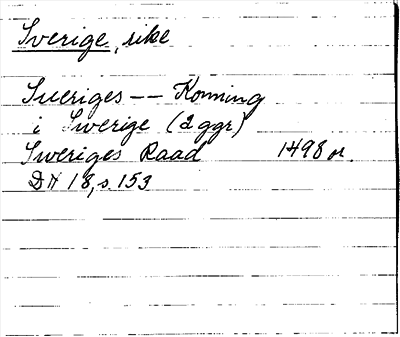 Sverige, rike
Sueriges -- Konning
i Swerige (2 ggr)
Sweriges Raad 1498 or.
DH 18, s 153